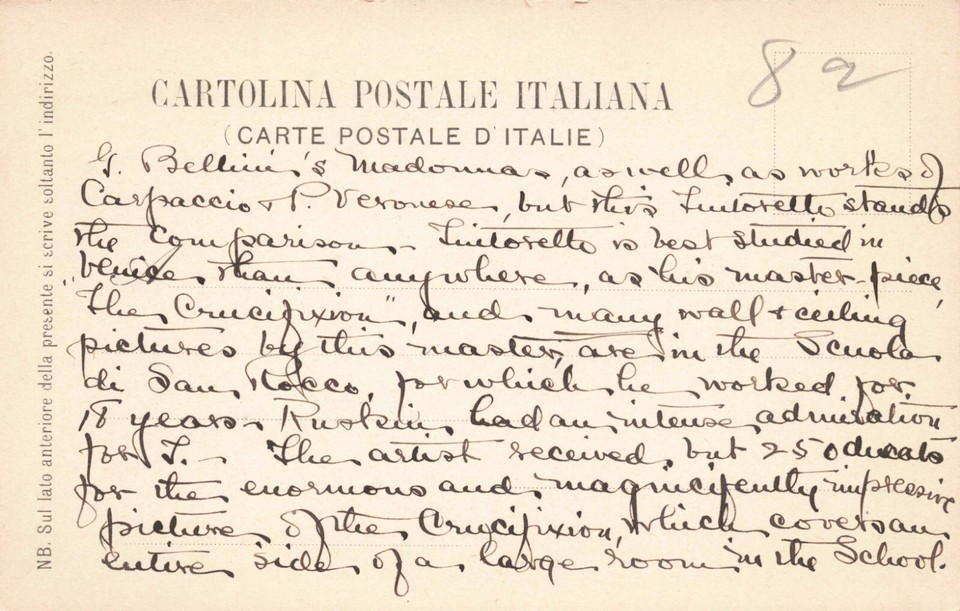 82
CARTOLINA POSTALE ITALIANA
(CARTE POSTALE D'ITALIE)
G. Bellini's Madonnas, as well as works of
Carpaccio & P. Veronese, but this Tintoretto stands
the comparison. Tintoretto is best studied in
Venice than anywhere, as his master-piece,
"The Crucifixion", and many wall & ceiling
pictures by this master, are in the Scuola
di San Rocco, for which he worked for
18 years. Ruskin had an intense admiration
for T. — The artist received but 250 ducats
for the enormous and magnificently impressive
picture of the Crucifixion, which covers an
entire side of a large room in the School.
NB. Sul lato anteriore della presente si scrive soltanto l'indirizzo.